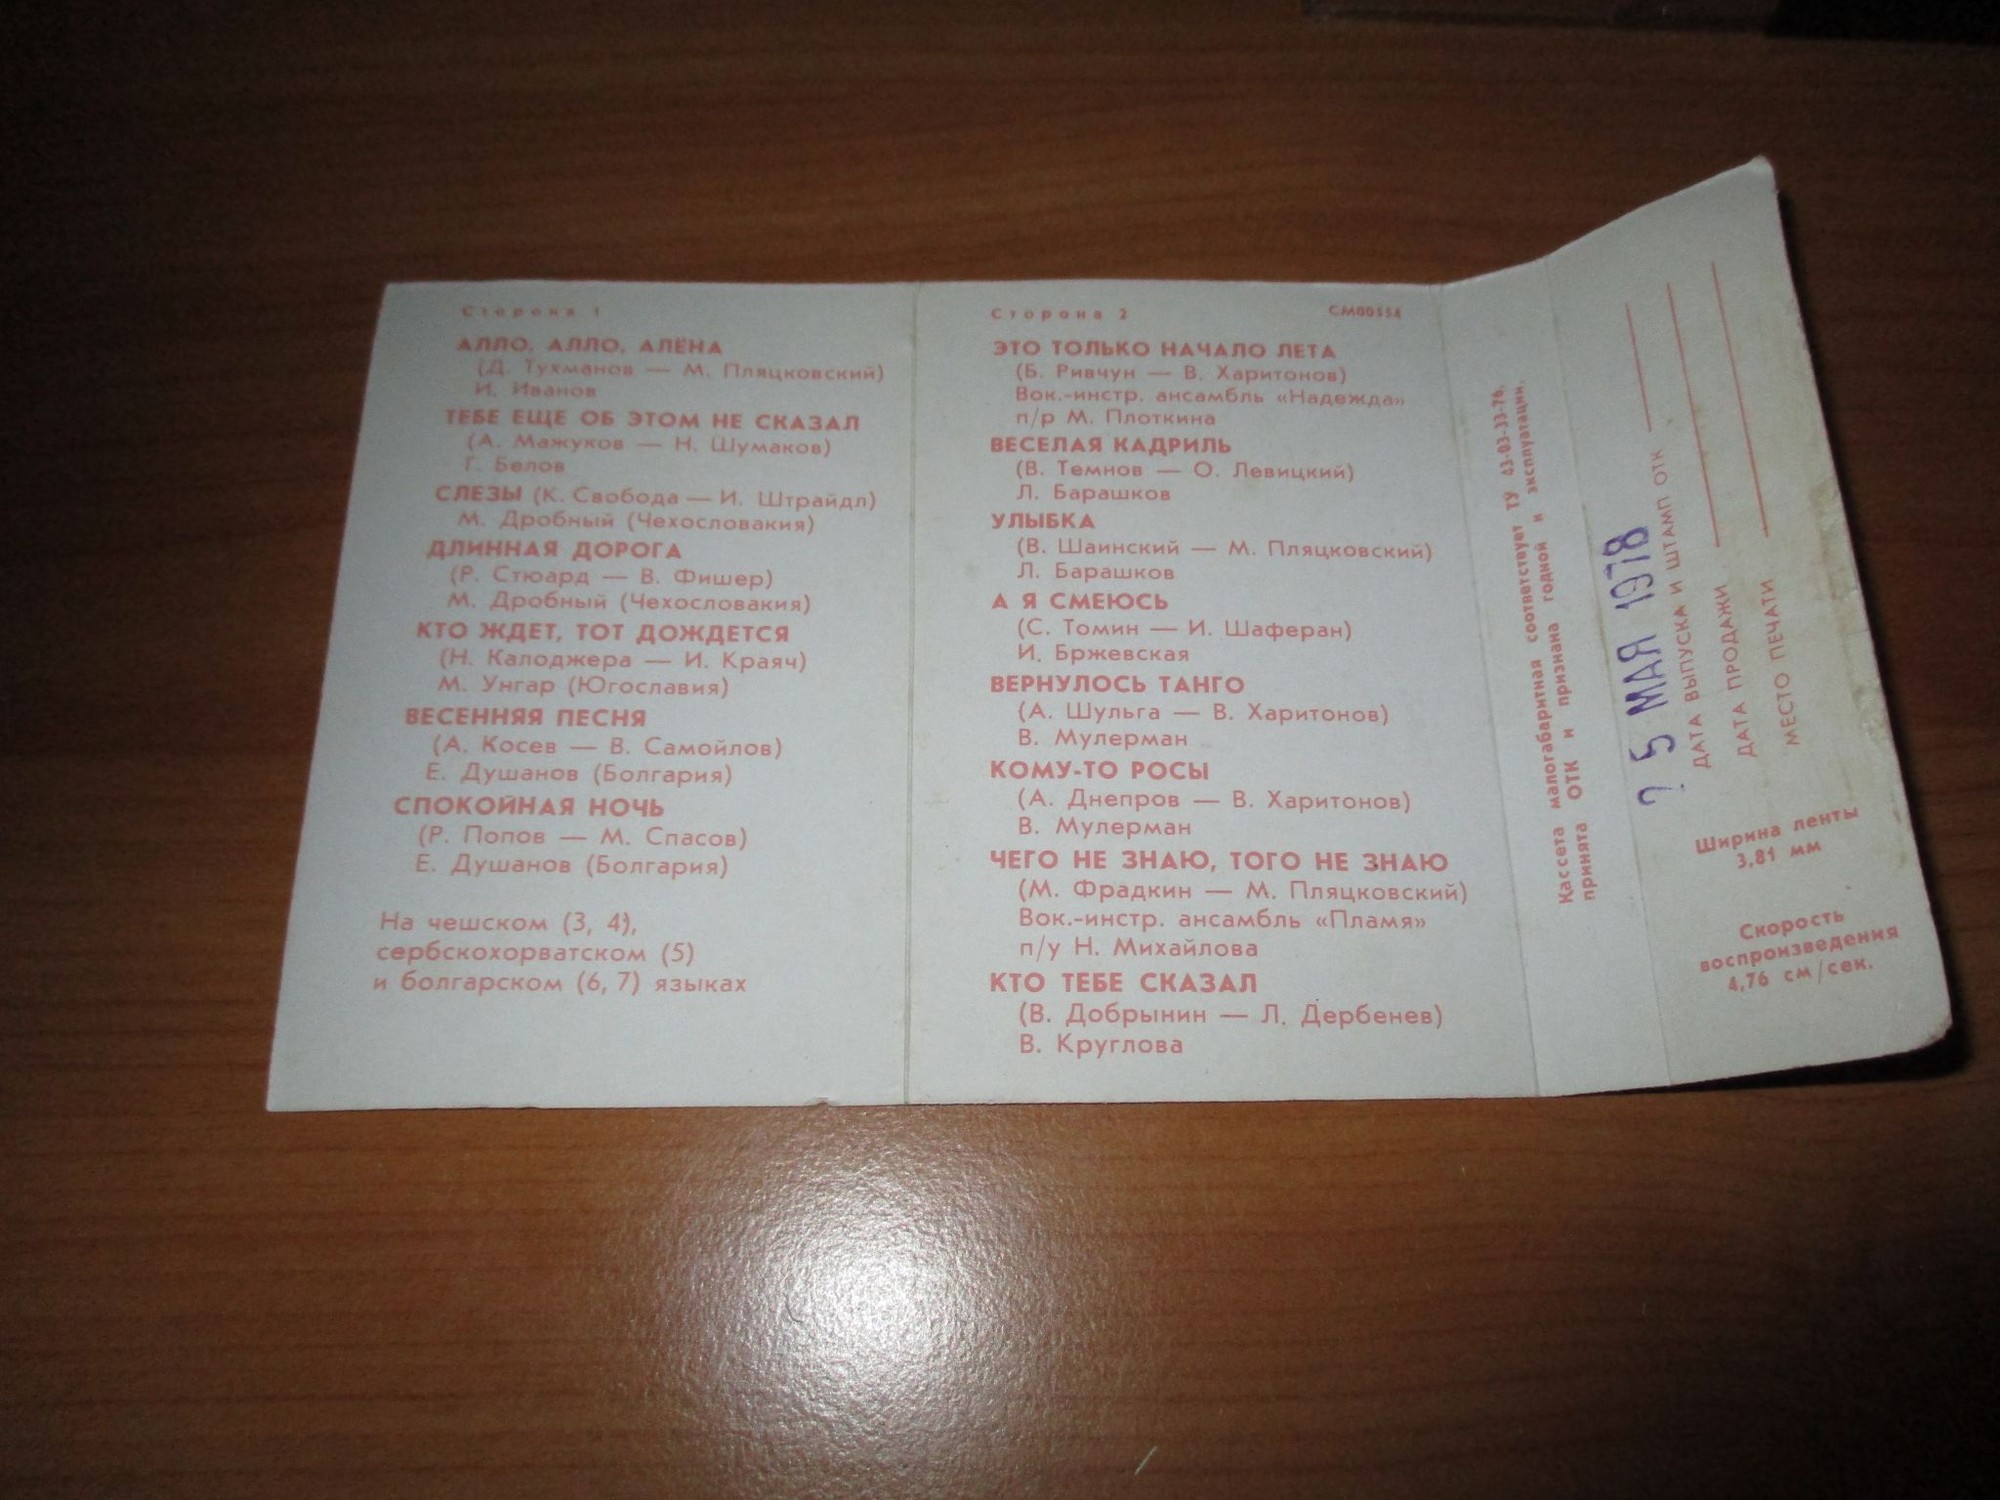 Сторона 1
АЛЛО, АЛЛО, АЛЕНА
(Д. Тухманов — М. Пляцковский)
И. Иванов
ТЕБЕ ЕЩЕ ОБ ЭТОМ НЕ СКАЗАЛ
(А. Мажуков — Н. Шумаков)
Г. Белов
СЛЕЗЫ (К. Свобода — И. Штрайдл)
М. Дробный (Чехословакия)
ДЛИННАЯ ДОРОГА
(Р. Стюард — В. Фишер)
М. Дробный (Чехословакия)
КТО ЖДЕТ, ТОТ ДОЖДЕТСЯ
(Н. Калоджера — И. Краяч)
М. Унгар (Югославия)
ВЕСЕННЯЯ ПЕСНЯ
(А. Косев — В. Самойлов)
Е. Душанов (Болгария)
СПОКОЙНАЯ НОЧЬ
(Р. Попов — М. Спасов)
Е. Душанов (Болгария)
На чешском (3, 4),
сербскохорватском (5)
и болгарском (6, 7) языках
Сторона 2
СМ00554
ЭТО ТОЛЬКО НАЧАЛО ЛЕТА
(Б. Ривчун — В. Харитонов)
Вок.-инстр. ансамбль «Надежда»
п/р М. Плоткина
ВЕСЕЛАЯ КАДРИЛЬ
(В. Темнов — О. Левицкий)
Л. Барашков
УЛЫБКА
(В. Шаинский — М. Пляцковский)
Л. Барашков
А Я СМЕЮСЬ
(С. Томин — И. Шаферан)
И. Бржевская
ВЕРНУЛОСЬ ТАНГО
(А. Шульга — В. Харитонов)
В. Мулерман
КОМУ-ТО РОСЫ
(А. Днепров — В. Харитонов)
В. Мулерман
ЧЕГО НЕ ЗНАЮ, ТОГО НЕ ЗНАЮ
(М. Фрадкин — М. Пляцковский)
Вок.-инстр. ансамбль «Пламя»
п/у Н. Михайлова
КТО ТЕБЕ СКАЗАЛ
(В. Добрынин — Л. Дербенев)
В. Круглова
Кассета малогабаритная соответствует ТУ 43-03-33-76,
принята ОТК и признана годной к эксплуатации.
25 МАЯ 1978
ДАТА ВЫПУСКА И ШТАМП ОТК
ДАТА ПРОДАЖИ
МЕСТО ПЕЧАТИ
Ширина ленты
3,81 мм
Скорость
воспроизведения
4,76 см/сек.